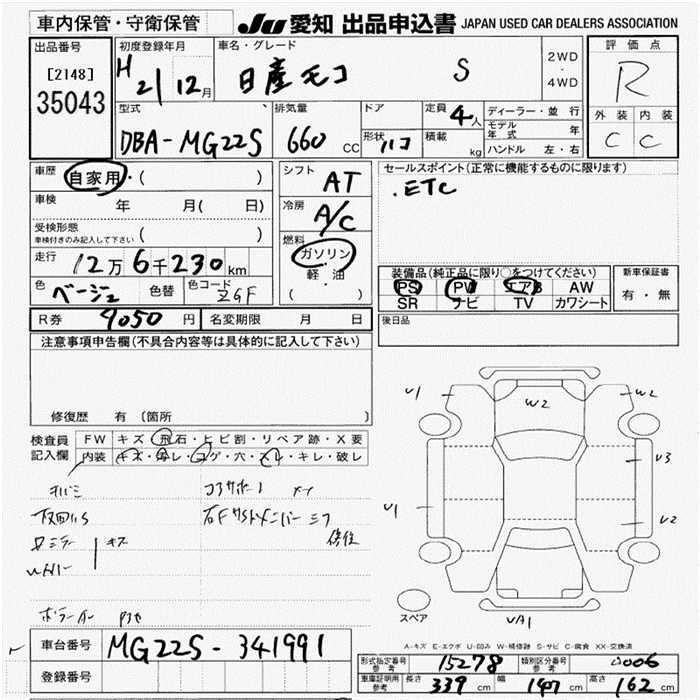 車内保管・守衛保管
JU 愛知 出品申込書 JAPAN USED CAR DEALERS ASSOCIATION
出品番号
[2148]
35043
初度登録年月
H 21 12月
車名・グレード
日産モコ S
2WD
・
4WD
評価点
R
外装 内装
C C
型式
DBA-MG22S
排気量
660 CC
ドア
形状 ハコ
定員 4人
積載 kg
ディーラー・並行
モデル年式 年
ハンドル 左・右
車歴 自家用・( )
車検 年 月( 日)
受検形態
車検付きのみ記入して下さい ( )
走行 12万6千230km
色 ベージュ 色替 色コード ZGF
シフト AT
冷房 A/C
燃料
ガソリン
軽・油
( )
セールスポイント(正常に機能するものに限ります)
.ETC
装備品(純正品に限り○をつけてください)
PS PW エアB AW
SR ナビ TV カワシート
新車保証書
有・無
R券 9050円 名変期限 月 日
後日品
注意事項申告欄(不具合内容等は具体的に記入して下さい)
修復歴 有(箇所 )
検査員
記入欄
FW キズ・飛石・ヒビ割・リペア跡・X要
内装 キズ・汚レ・コゲ・穴・スレ・キレ・破レ
キズ
修復
U1
W2
W2
U3
U1
U2
UA1
スペア
A-キズ E-エクボ U-凹み W-補修跡 S-サビ C-腐食 XX-交換済
車台番号 MG22S-341991
登録番号
型式指定番号 参考 15278 類別区分番号 参考 0006
車庫証明用 参考 長さ 339cm 幅 147cm 高さ 162cm